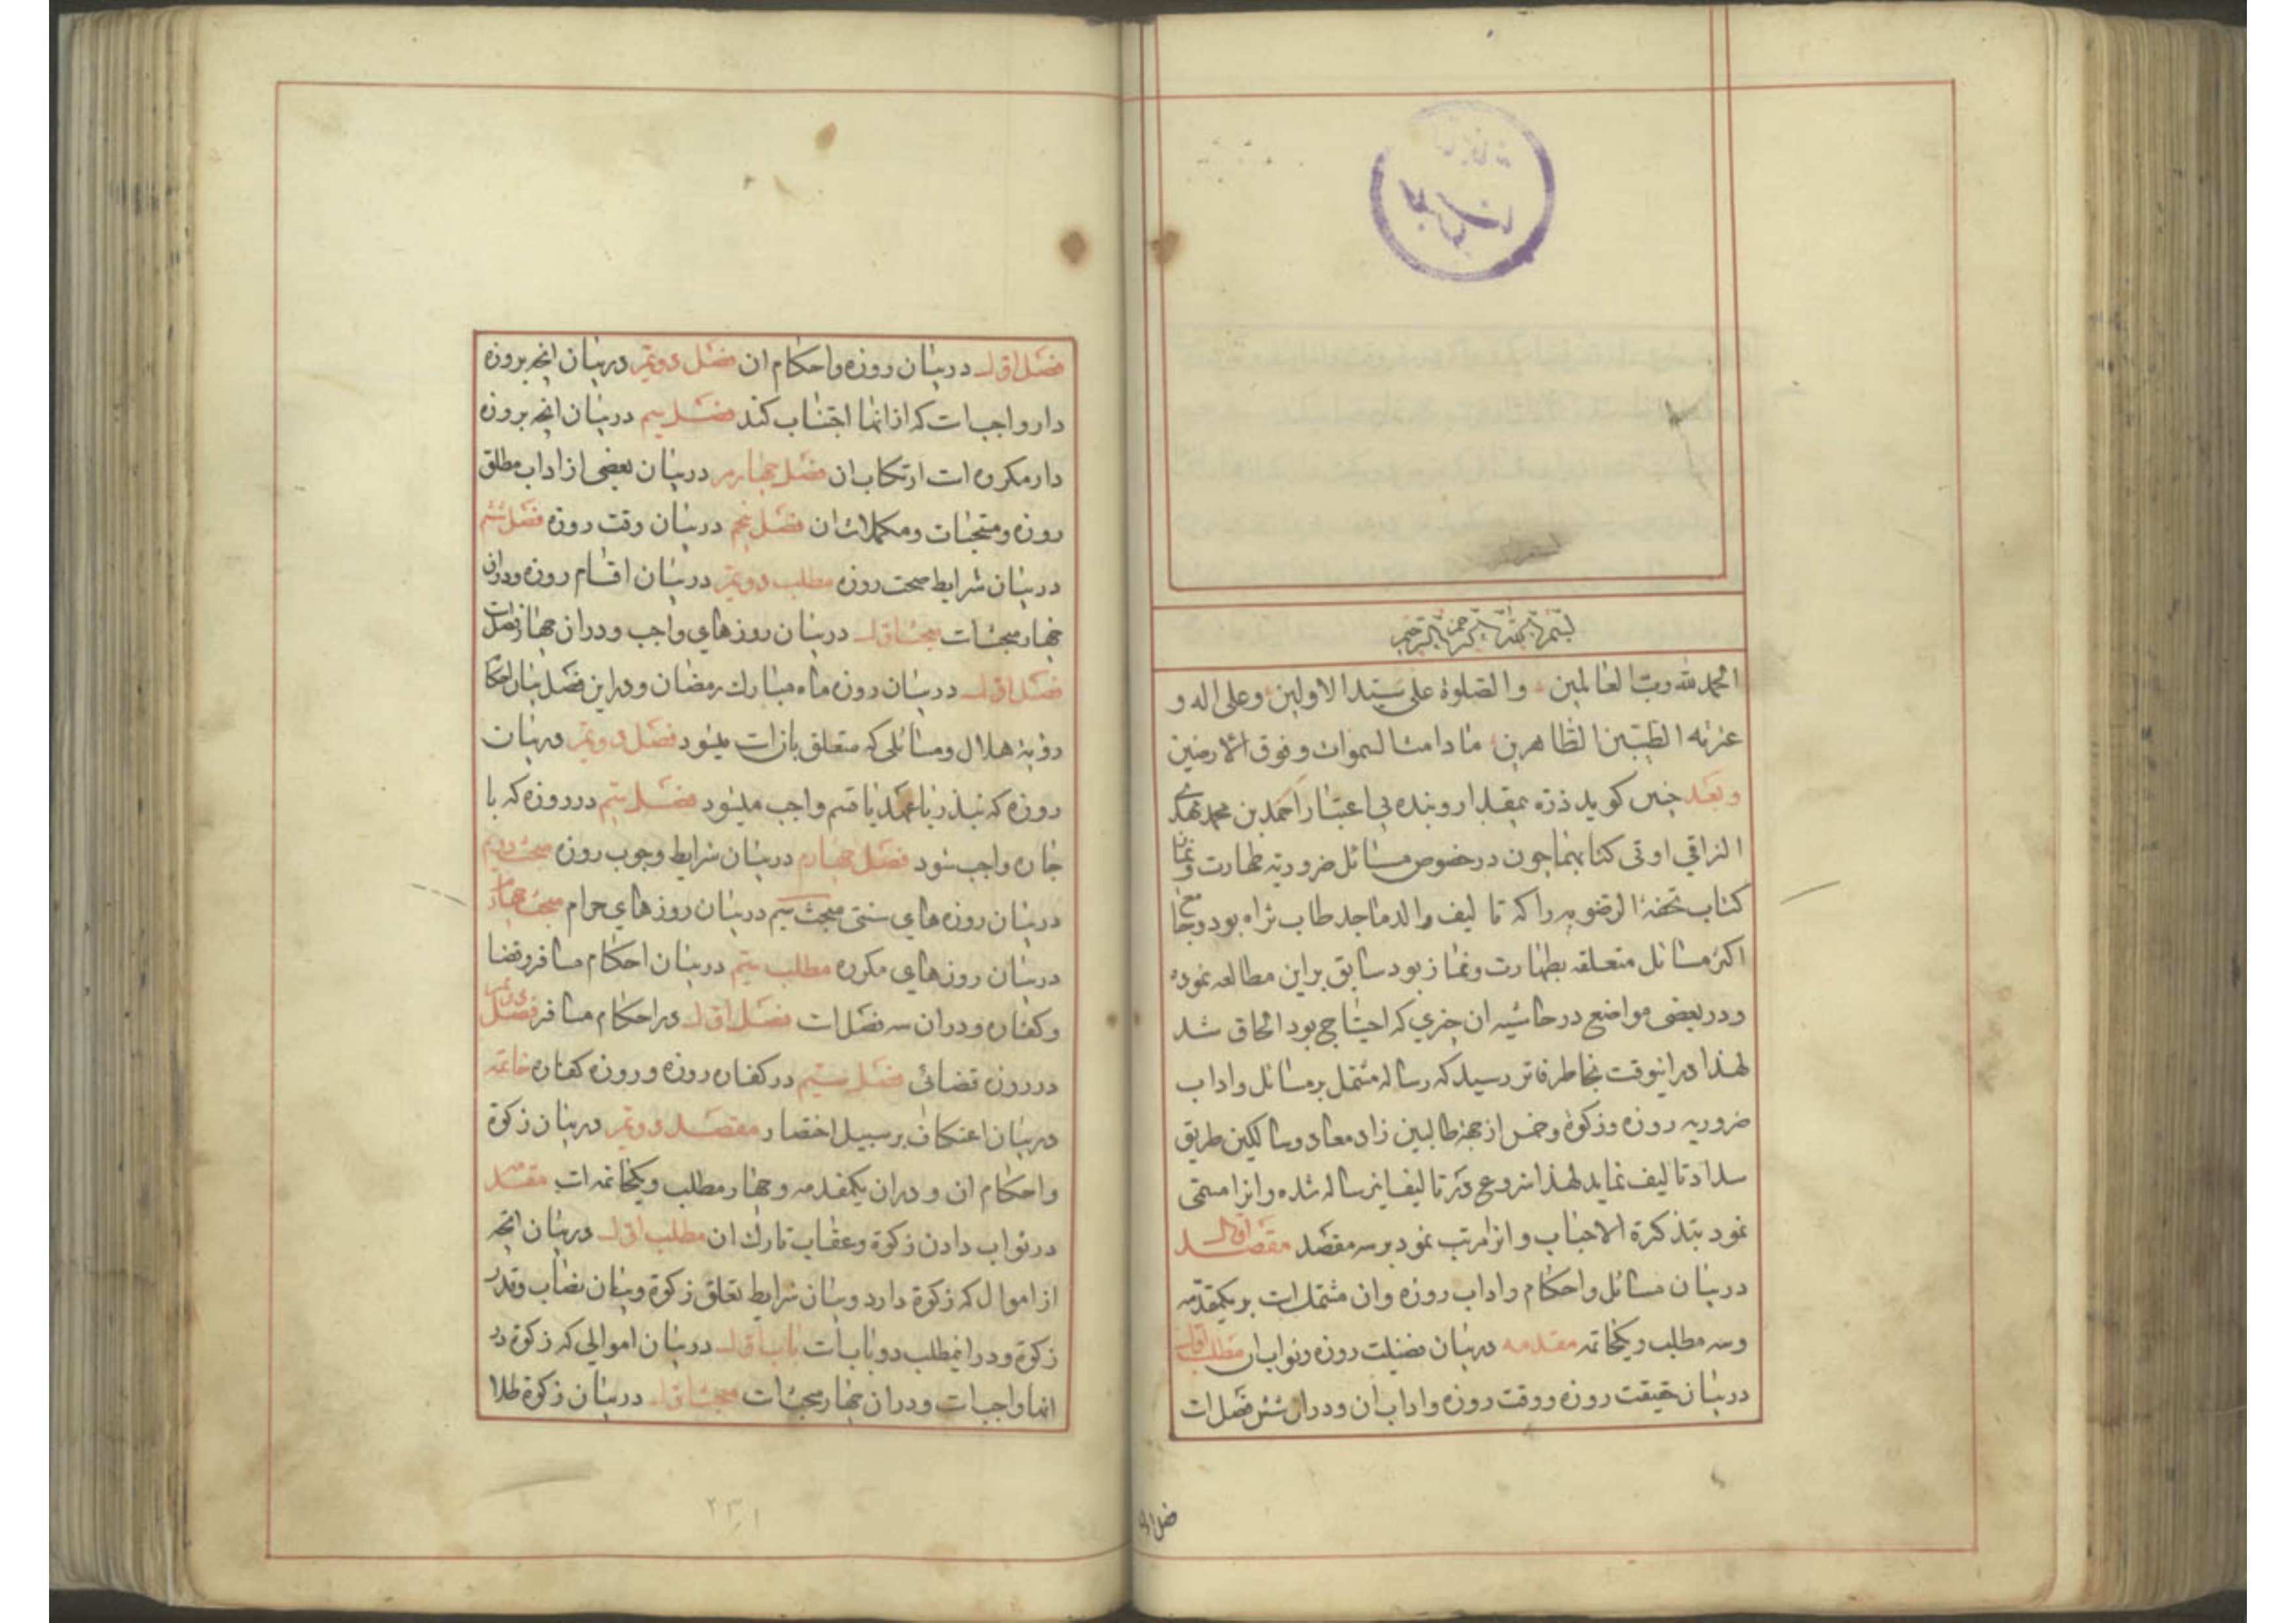 بسم الله الرحمن الرحیم
الحمد لله رب العالمین والصلوة علی سید الاولین وعلی اله و
عترته الطیبین الطاهرین ما دامت السموات وفوق الارضین
وبعد چنین کوید ذره بیمقدار وبنده بی اعتبار احمد بن محمد مهدی
النراقی اوتی کتابهما چون در خصوص مسائل ضروریه طهارت ونماز
کتاب تحفة الرضویه را که تالیف والد ماجد طاب ثراه بود و
اکثر مسائل متعلقه بطهارت ونماز بود سابق براین مطالعه نموده
ودر بعضی مواضع در حاشیه ان چیزی که احتیاج بود الحاق شد
لهذا در اینوقت بخاطر فاتر رسید که رساله مشتمل بر مسائل واداب
ضروریه روزه وزکوة وخمس از جهة طالبین زاد معاد وسالکین طریق
سداد تالیف نماید لهذا شروع در تالیف این رساله شده وانرا مسمی
نمود بتذکرة الاحباب وانرا مرتب نمود بر سه مقصد مقصد اول
در بیان مسائل واحکام واداب روزه وان مشتمل است بر یکمقدمه
وسه مطلب ویکخاتمه مقدمه در بیان فضیلت روزه وثواب ان مطلب اول
در بیان حقیقت روزه ووقت روزه واداب ان ودران شش فصل است
فصل اول
فصل اول در بیان روزه واحکام ان فصل دویم در بیان انچه بر روزه
دار واجب است که از انها اجتناب کند فصل سیم در بیان انچه بر روزه
دار مکروه است ارتکاب ان فصل چهارم در بیان بعضی از اداب مطلق
روزه ومستحبات ومکملات ان فصل پنجم در بیان وقت روزه فصل ششم
در بیان شرایط صحت روزه مطلب دویم در بیان اقسام روزه ودران
چهار مبحث است مبحث اول در بیان روزهای واجب ودران چهار فصل است
فصل اول در بیان روزه ماه مبارک رمضان ودر این فصل بیان احکام
رؤیة هلال ومسائلی که متعلق بان است میشود فصل دویم در بیان
روزه که بنذر یا عهد یا قسم واجب میشود فصل سیم در روزه که با
جاره واجب شود فصل چهارم در بیان شرایط وجوب روزه مبحث دویم
در بیان روزه های سنتی مبحث سیم در بیان روزهای حرام مبحث چهارم
در بیان روزهای مکروه مطلب سیم در بیان احکام مسافر وقضا
وکفاره ودران سه فصل است فصل اول در احکام مسافر فصل دویم
در روزه قضائی فصل سیم در کفاره روزه وروزه کفاره خاتمه
در بیان اعتکاف بر سبیل اختصار مقصد دویم در بیان زکوة
واحکام ان ودران یکمقدمه وچهار مطلب ویکخاتمه است مقدمه
در ثواب دادن زکوة وعقاب تارک ان مطلب اول در بیان انچه
از اموال که زکوة دارد وبیان شرایط تعلق زکوة وبیان نصاب وقدر
زکوة ودر اینمطلب دو باب است باب اول در بیان اموالی که زکوة در
انها واجب است ودران چهار مبحث است مبحث اول در بیان زکوة طلا